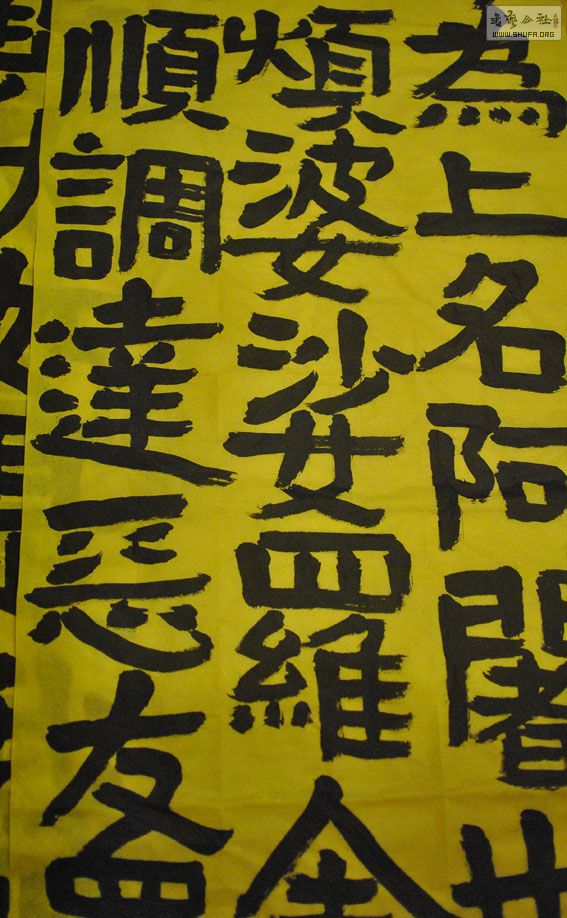 為上名阿闍世
煩婆娑羅
順調達惡友
書藝公社
WWW.SHUFA.ORG